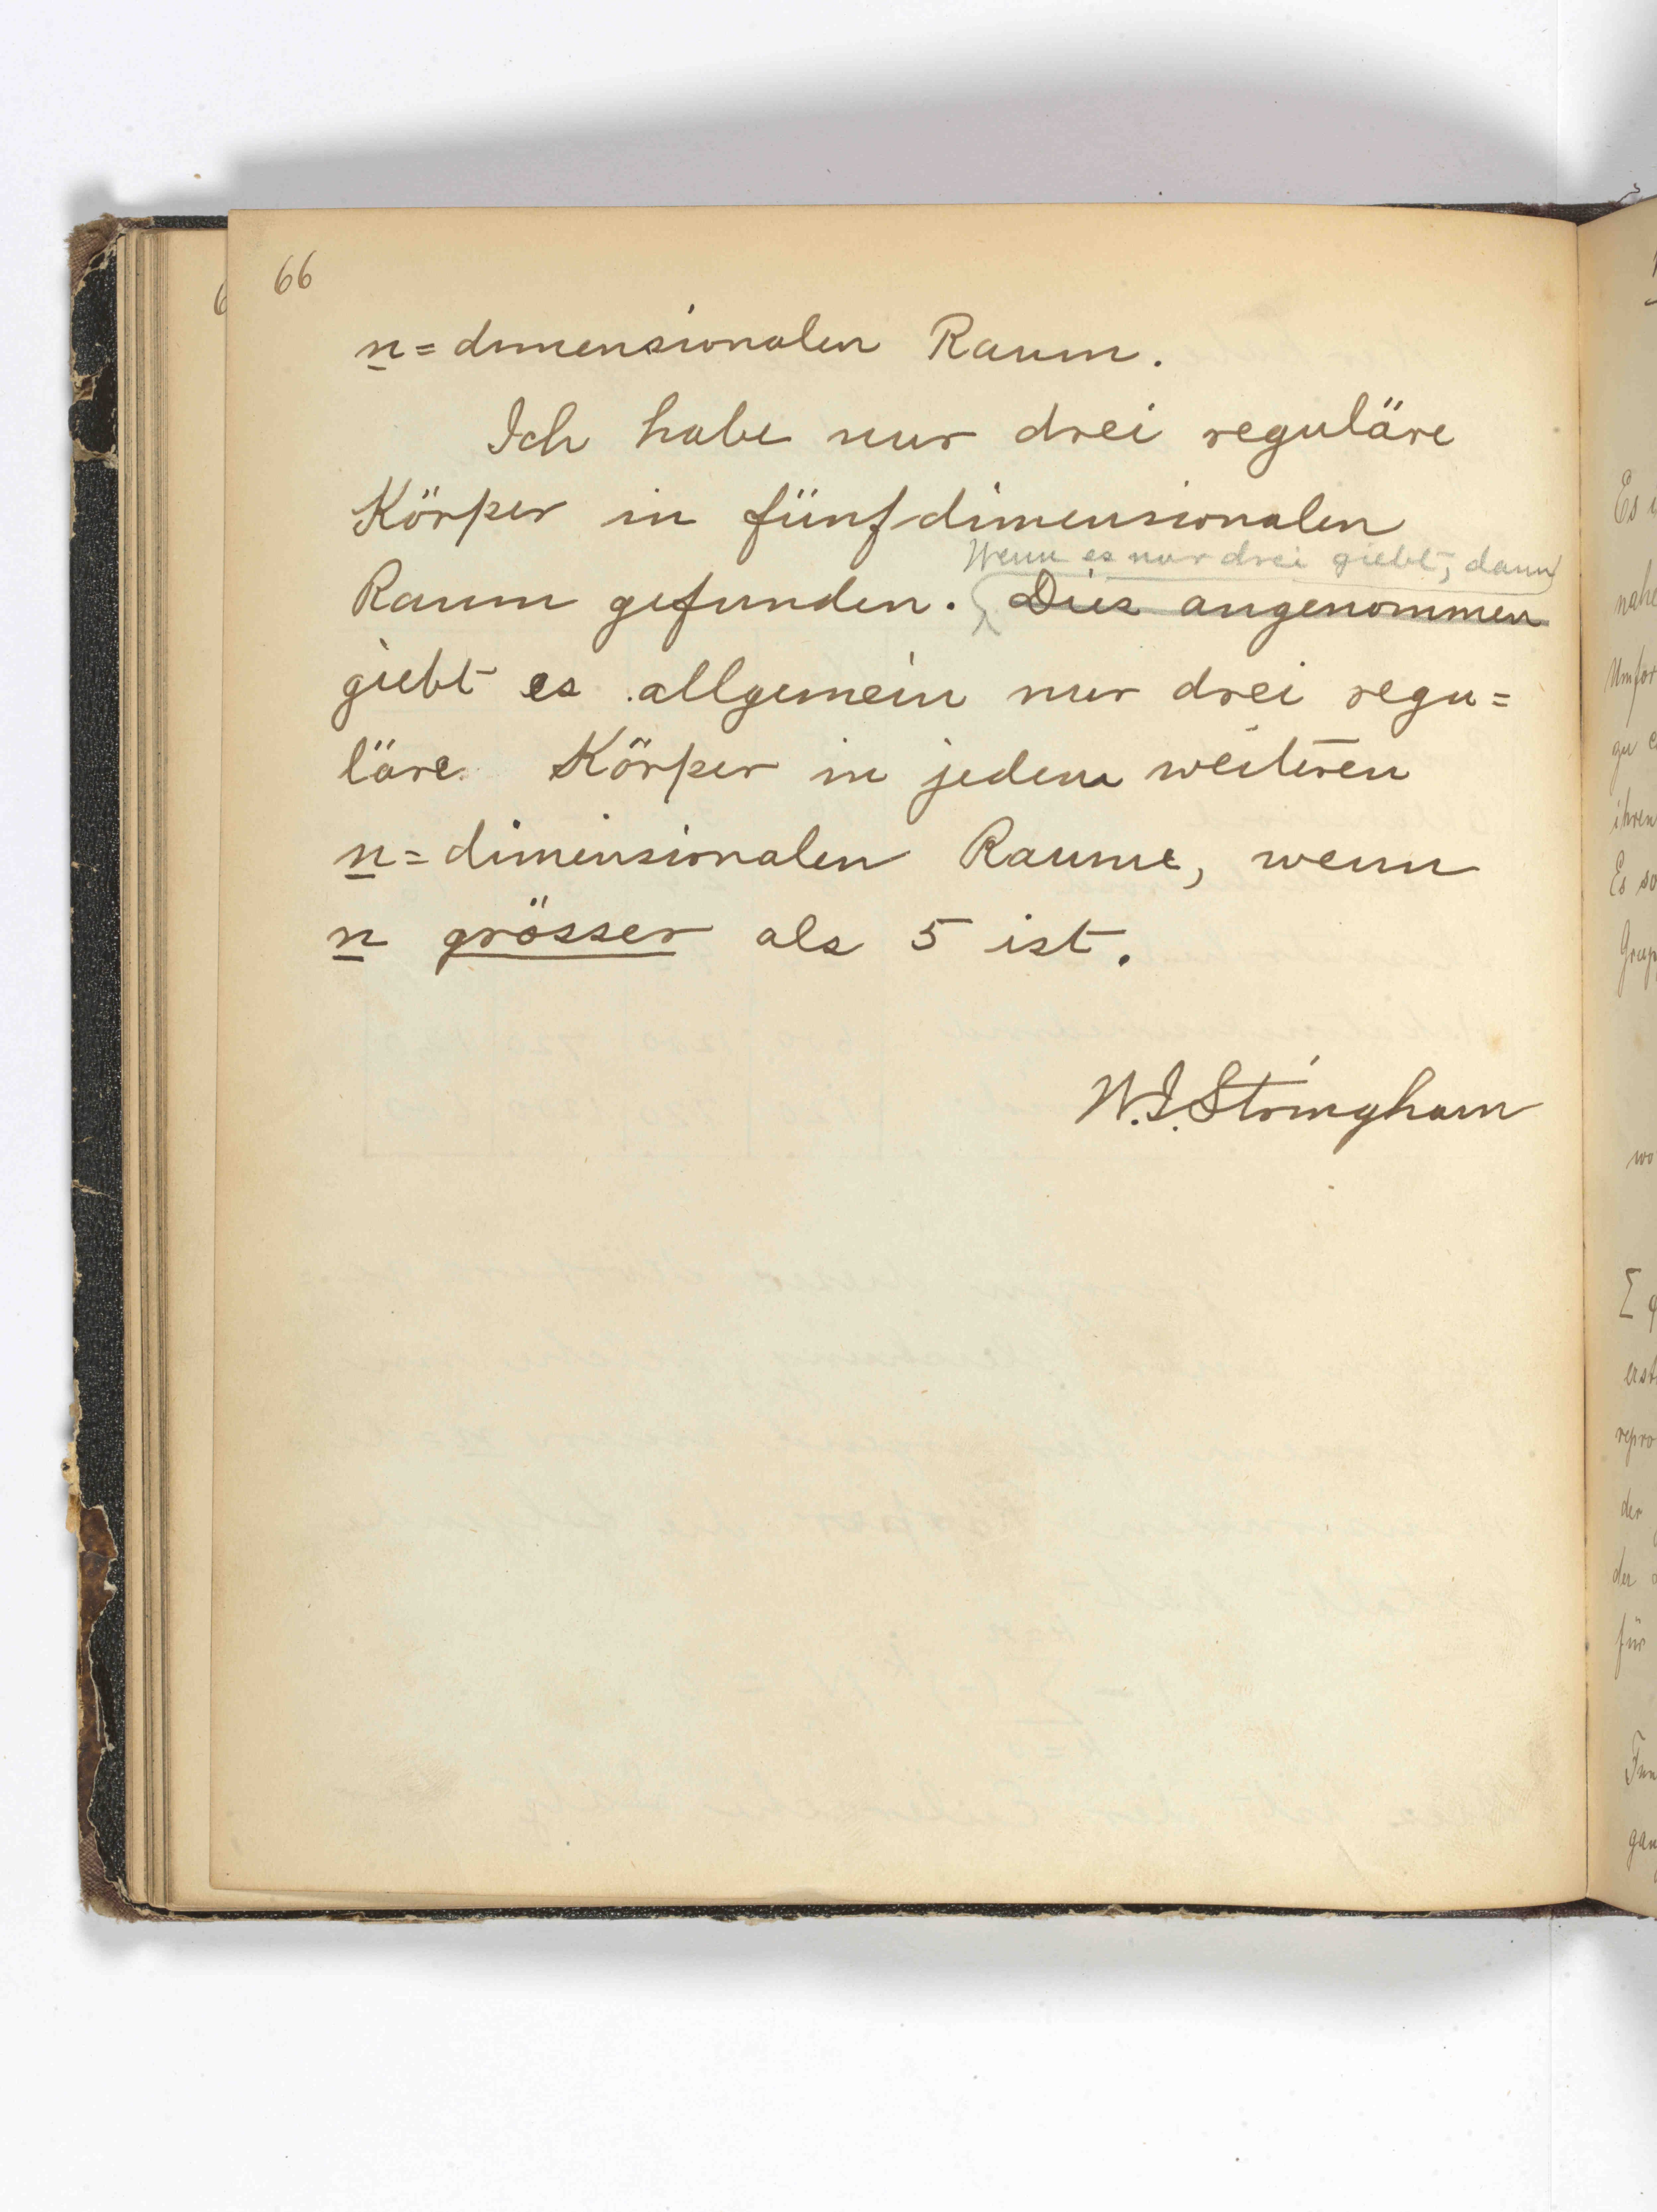 66
n=dimensionalen Raum.
Ich habe nur drei reguläre
Körper in fünfdimensionalen
Wenn es nur drei giebt, dann
Raum gefunden. Dies angenommen
giebt es allgemein nur drei regu=
läre Körper in jedem weiteren
n=dimensionalen Raume, wenn
n grösser als 5 ist.
W.I. Stringham